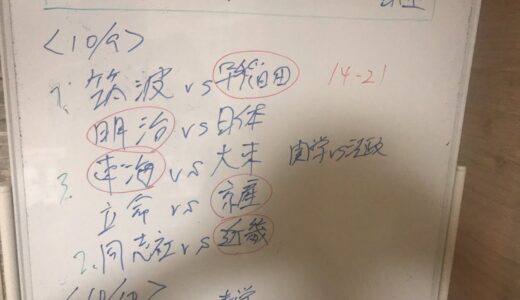 <10/9>
1. 筑波 vs 早稲田 14-21
明治 vs 日体
3. 東海 vs 大東 関学 vs 法政
立命 vs 京産
2. 同志社 vs 近畿